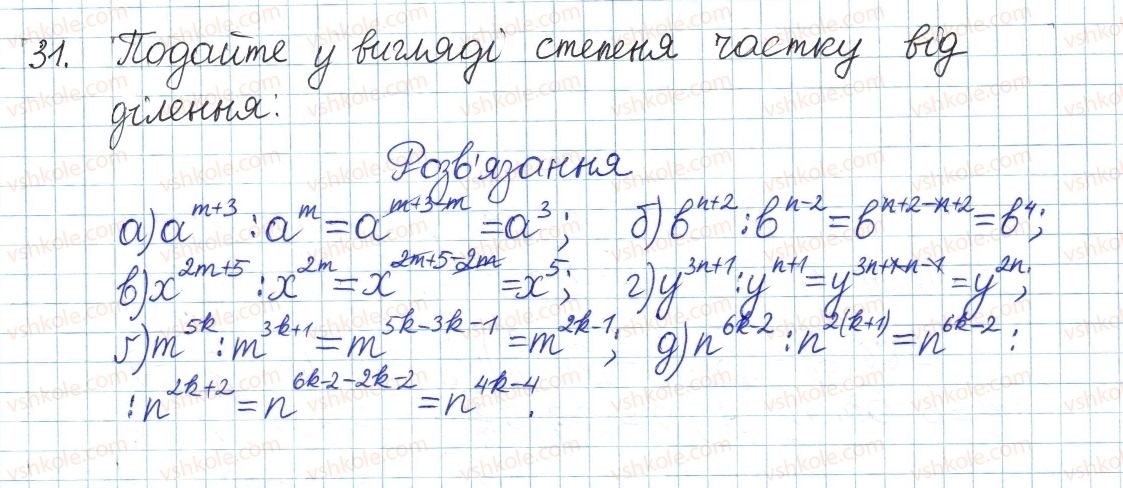 31. Подайте у вигляді степеня частку від
ділення:
Розв'язання
а) a^{m+3} : a^{m} = a^{m+3-m} = a^{3}; б) b^{n+2} : b^{n-2} = b^{n+2-n+2} = b^{4};
в) x^{2m+5} : x^{2m} = x^{2m+5-2m} = x^{5}; г) y^{3n+1} : y^{n+1} = y^{3n+1-n-1} = y^{2n};
ґ) m^{5k} : m^{3k+1} = m^{5k-3k-1} = m^{2k-1}; д) n^{6k-2} : n^{2(k+1)} = n^{6k-2} :
: n^{2k+2} = n^{6k-2-2k-2} = n^{4k-4}.
vshkole.com